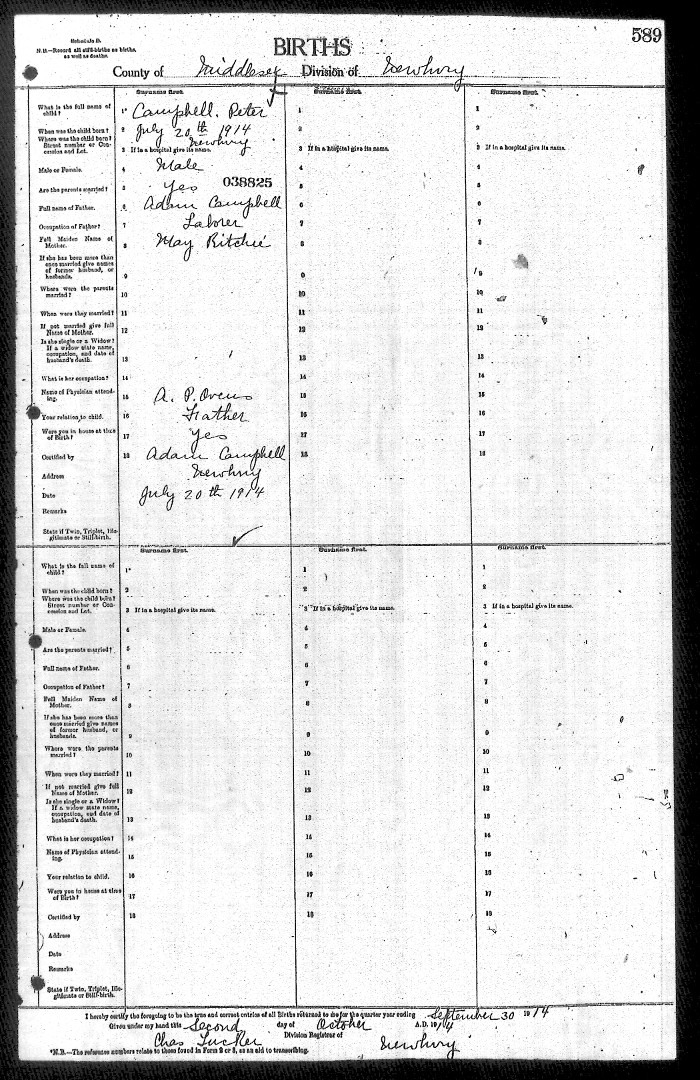 589
Schedule B.
N.B.—Record all still-births as births, as well as deaths.
BIRTHS
County of Middlesex Division of Newbury
Surname first. Surname first. Surname first.
What is the full name of child? 1* Campbell, Peter 1 1
When was the child born? 2 July 20th 1914 2 2
Where was the child born? Street number or Concession and Lot. Newbury
3 If in a hospital give its name. 3 If in a hospital give its name. 3 If in a hospital give its name.
Male or Female. 4 Male 4 4
Are the parents married? 5 Yes 038825 5 5
Full name of Father. 6 Adam Campbell 6 6
Occupation of Father? 7 Laborer 7 7
Full Maiden Name of Mother. 8 May Ritchie 8 8
If she has been more than once married give names of former husband, or husbands. 9 9 9
Where were the parents married? 10 10 10
When were they married? 11 11 11
If not married give full Name of Mother. 12 12 12
Is she single or a Widow? If a widow state name, occupation, and date of husband's death. 13 13 13
What is her occupation? 14 14 14
Name of Physician attending. 15 A. P. Owens 15 15
Your relation to child. 16 Father 16 16
Were you in house at time of Birth? 17 Yes 17 17
Certified by 18 Adam Campbell 18 18
Address Newbury
Date July 20th 1914
Remarks
State if Twin, Triplet, Illegitimate or Still-birth.
Surname first. Surname first. Surname first.
What is the full name of child? 1* 1 1
When was the child born? 2 2 2
Where was the child born? Street number or Concession and Lot. 3 If in a hospital give its name. 3 If in a hospital give its name. 3 If in a hospital give its name.
Male or Female. 4 4 4
Are the parents married? 5 5 5
Full name of Father. 6 6 6
Occupation of Father? 7 7 7
Full Maiden Name of Mother. 8 8 8
If she has been more than once married give names of former husband, or husbands. 9 9 9
Where were the parents married? 10 10 10
When were they married? 11 11 11
If not married give full Name of Mother. 12 12 12
Is she single or a Widow? If a widow state name, occupation, and date of husband's death. 13 13 13
What is her occupation? 14 14 14
Name of Physician attending. 15 15 15
Your relation to child. 16 16 16
Were you in house at time of Birth? 17 17 17
Certified by 18 18 18
Address
Date
Remarks
State if Twin, Triplet, Illegitimate or Still-birth.
I hereby certify the foregoing to be the true and correct entries of all Births returned to me for the quarter year ending September 30 1914
Given under my hand this Second day of October A.D. 1914
Chas Tucker Division Registrar of Newbury
*N.B.—The reference numbers relate to those found in Form 2 or 3, as an aid to transcribing.